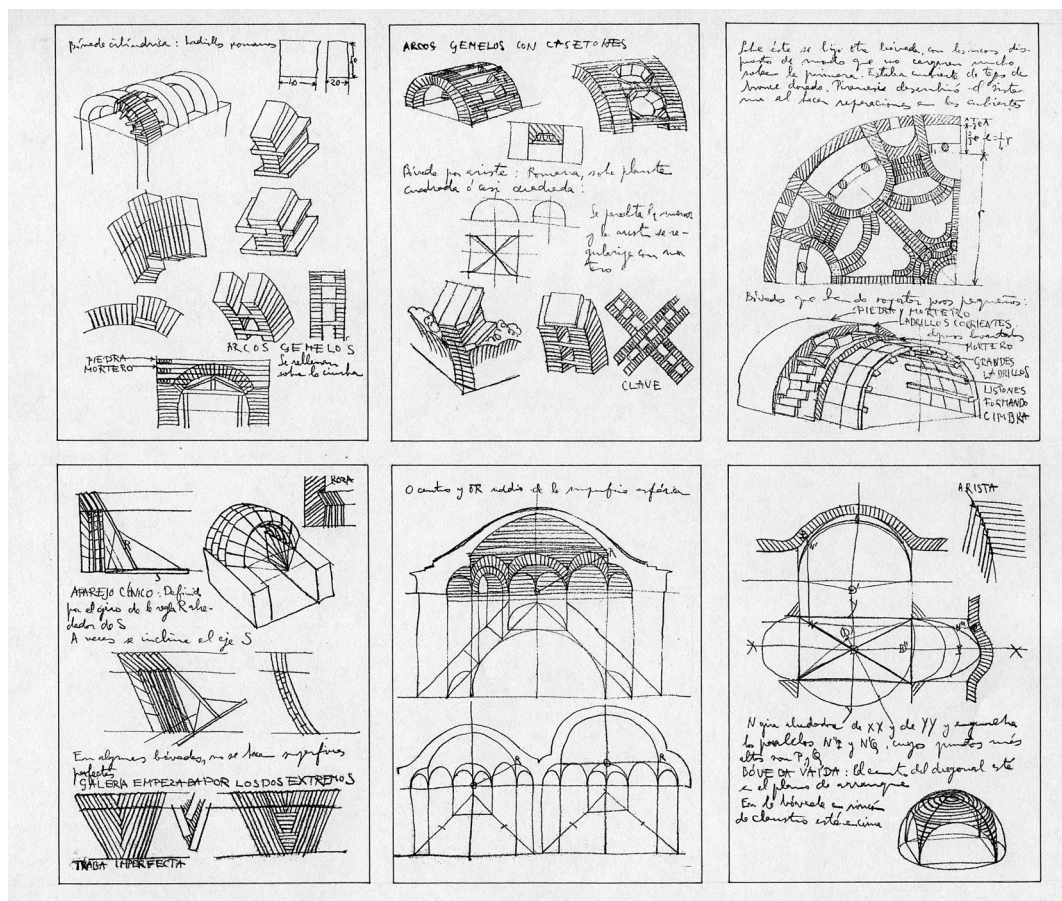 Bóveda cilíndrica: Ladrillo romano
60
40
20
ARCOS GEMELOS
Se rellenan
sobre la cimbra
PIEDRA
MORTERO
ARCOS GEMELOS CON CASETONES
Bóveda por arista: Romana, sobre planta
cuadrada ó casi cuadrada:
Se peralta la menor
y la arista se re-
gulariza con mor-
tero
CLAVE
Sobre éste se hizo otra bóveda, con los arcos dis-
puestos de modo que no carguen mucho
sobre la primera. Estaba cubierta de tejas de
bronce dorado. Piranesi descubrió el siste-
ma al hacer reparaciones en las cubiertas
r
Bóvedas que han de soportar pesos pequeños:
PIEDRA Y MORTERO
LADRILLOS CORRIENTES
algunos levantados
MORTERO
GRANDES
LADRILLOS
LISTONES
FORMANDO
CIMBRA
ROZA
R
S
APAREJO CÓNICO: Definido
por el giro de la regla R alre-
dedor de S
A veces se inclina el eje S
En algunas bóvedas, no se hacen superficies
perfectas
GALERÍA EMPEZADA POR LOS DOS EXTREMOS
TRABA IMPERFECTA
O centro y OR radio de la superficie esférica
R
R
R
ARISTA
X
X
Y
Y
N gira alrededor de XX y de YY y engendra
los paralelos N'P y N''Q, cuyos puntos más
altos son P y Q
BÓVEDA VAÍDA: El centro del diagonal está
en el plano de arranque
En la bóveda en rincón
de claustro está encima